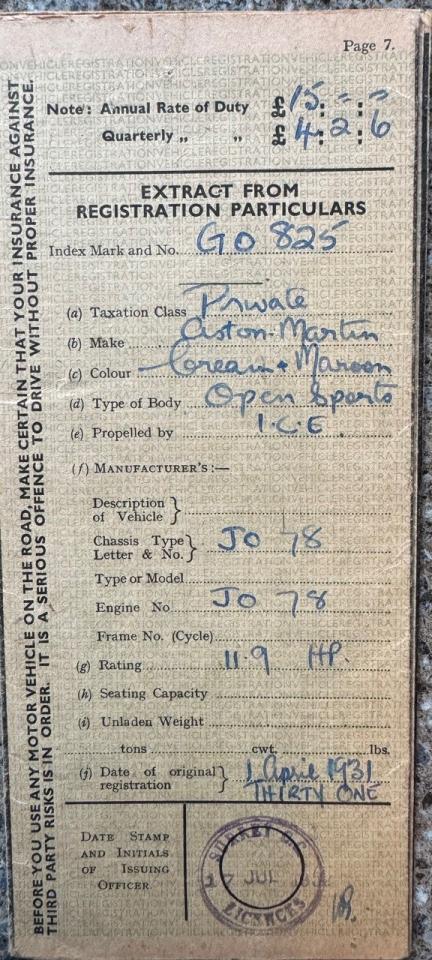 Page 7.
Note: Annual Rate of Duty £ 15 : - : -
Quarterly „ „ £ 4 : 2 : 6
EXTRACT FROM
REGISTRATION PARTICULARS
Index Mark and No. GO 825
(a) Taxation Class Private
(b) Make Aston-Martin
(c) Colour Cream + Maroon
(d) Type of Body Open Sports
(e) Propelled by I.C.E.
(f) MANUFACTURER'S:—
Description
of Vehicle }
Chassis Type
Letter & No. } JO 78
Type or Model
Engine No JO 78
Frame No. (Cycle)
(g) Rating 11.9 HP.
(h) Seating Capacity
(i) Unladen Weight
tons cwt. lbs.
(j) Date of original
registration } 1 April 1931
THIRTY ONE
DATE STAMP
AND INITIALS
OF ISSUING
OFFICER.
SURREY C.C.
JUL
LICENCES
BEFORE YOU USE ANY MOTOR VEHICLE ON THE ROAD, MAKE CERTAIN THAT YOUR INSURANCE AGAINST
THIRD PARTY RISKS IS IN ORDER. IT IS A SERIOUS OFFENCE TO DRIVE WITHOUT PROPER INSURANCE.